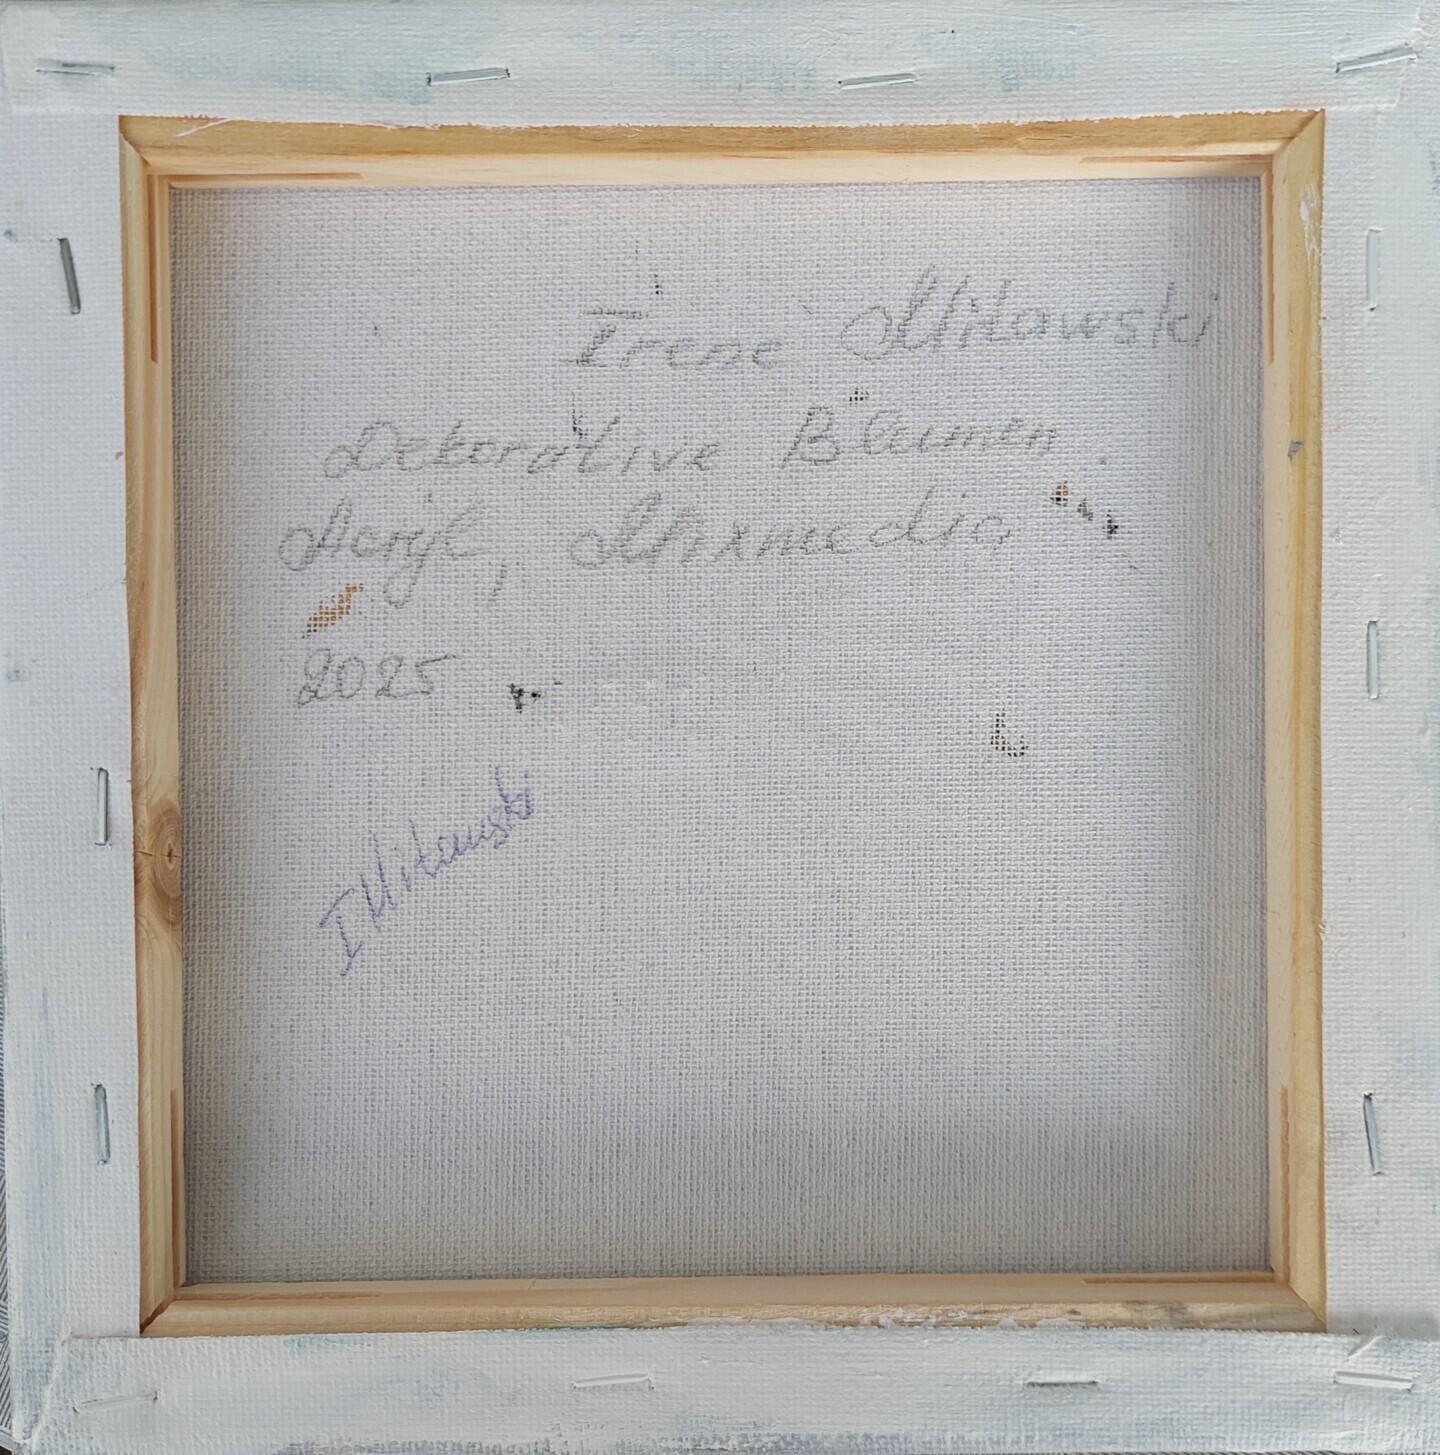 Irene Mitowski
Dekorative Blumen
Acryl, Mixmedia
2025
I Mitowski